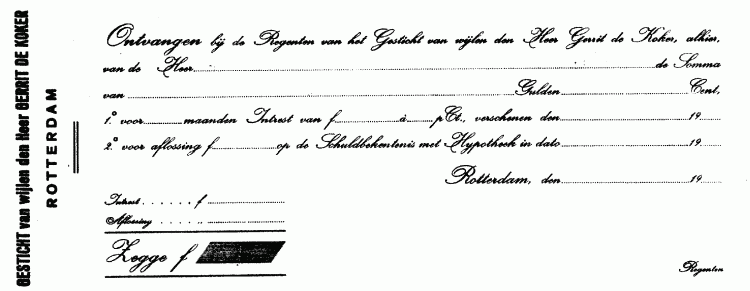 GESTICHT van wijlen den Heer GERRIT DE KOKER
ROTTERDAM
Ontvangen bij de Regenten van het Gesticht van wijlen den Heer Gerrit de Koker, alhier,
van de Heer de Somma
van Gulden Cent,
1.º voor maanden Intrest van f à pCt., verschenen den 19
2.º voor aflossing f op de Schuldbekentenis met Hypotheek in dato 19
Rotterdam, den 19
Intrest f
Aflossing
Zegge f
Regenten